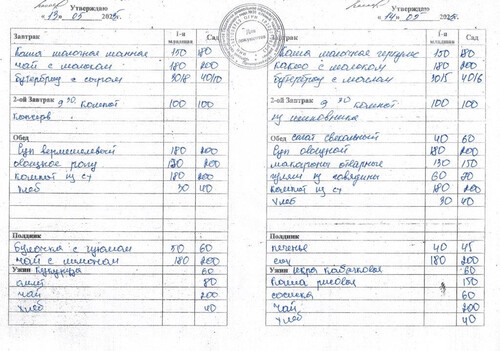 Утверждаю
«13» 05 2025г.
Завтрак 1-я младшая Сад
Каша молочная манная 150 180
Чай с молоком 180 200
Бутерброд с сыром 30/8 40/10
2-ой Завтрак 9 30 компот 100 100
консерв
Обед
Суп вермишелевый 180 200
овощное рагу 120 200
Компот из с/ф 180 200
Хлеб 30 40
Полдник
Булочка с 50 60
Чай с лимоном 180 200
Ужин Кукуруза 60
омлет 80
чай 200
хлеб 40
Утверждаю
«14» 05 2025г.
Завтрак 1-я младшая Сад
Каша молочная геркулес 150 180
какао с молоком 180 200
Бутерброд с маслом 30/5 40/6
2-ой Завтрак 9 30 компот 100 100
из шиповника
Обед салат свекольный 40 60
Суп овощной 180 200
макароны отварные 130 150
гуляш из говядины 60 70
Компот из с/ф 180 200
Хлеб 30 40
Полдник
печенье 40 45
сок 180 200
Ужин икра кабачковая 60
каша рисовая 150
сосиска 60
Чай 200
хлеб 40